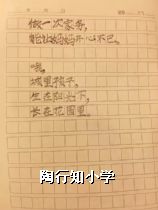 做一次家务,
能让妈妈开心不已。
哦,
城里孩子,
生在阳光下,
长在花园里。
陶行知小学